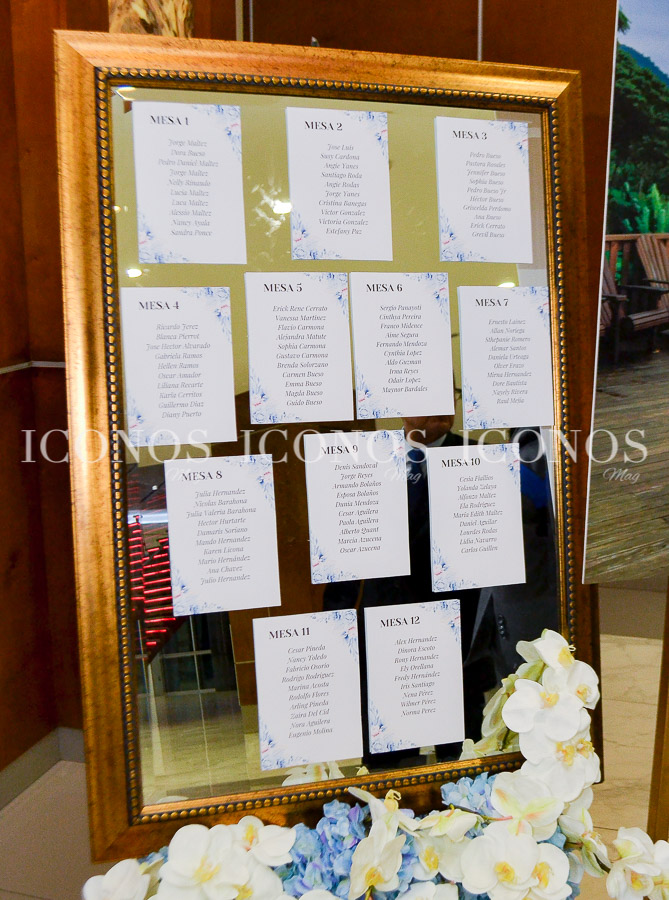 MESA 1
Jorge Maltez
Dora Bueso
Pedro Daniel Maltez
Jorge Maltez
Nelly Rinundo
Lucia Maltez
Luca Maltez
Alexus Maltez
Nancy Ayala
Sandra Ponce
MESA 2
Jose Luis
Susy Cardona
Angie Yanes
Santiago Roda
Angie Rodas
Jorge Yanes
Cristina Banegas
Victor Gonzalez
Victoria Gonzalez
Estefany Paz
MESA 3
Pedro Bueso
Pastora Rosales
Jennifer Bueso
Sophia Bueso
Pedro Bueso Jr
Héctor Bueso
Griselda Perdomo
Ana Bueso
Erick Cerrato
Grevil Bueso
MESA 4
Ricardo Jerez
Blanca Pierrot
Jose Hector Alvarado
Gabriela Ramos
Hellen Ramos
Oscar Amador
Liliana Recarte
Karla Cerritos
Guillermo Diaz
Diany Puerto
MESA 5
Erick Rene Cerrato
Vanessa Martinez
Flavio Carmona
Alejandra Matute
Sophia Carmona
Gustavo Carmona
Brenda Solorzano
Carmen Bueso
Emma Bueso
Magda Bueso
Guido Bueso
MESA 6
Sergio Panayoti
Cinthya Pereira
Franco Midence
Aime Segura
Fernando Mendoza
Cynthia Lopez
Aldo Guzman
Irma Reyes
Odair Lopez
Maynor Bardales
MESA 7
Ernesto Lainez
Allan Noriega
Sthepanie Romero
Alemar Santos
Daniela Urteaga
Oliver Erazo
Mirna Hernandez
Dore Bautista
Nasely Rivera
Raul Mejia
MESA 8
Julia Hernandez
Nicolas Barahona
Julia Valeria Barahona
Hector Huriarte
Damaris Soriano
Mando Hernandez
Karen Licona
Mario Hernández
Ana Chavez
Julio Hernandez
MESA 9
Denis Sandoval
Jorge Reyes
Armando Bolaños
Esposa Bolaños
Dania Mendoza
Cesar Aguilera
Paola Aguilera
Alberto Quant
Marcia Azucena
Oscar Azucena
MESA 10
Cesia Fiallos
Yolanda Zelaya
Alfonzo Maltez
Ela Rodriguez
Maria Edith Maltez
Daniel Aguilar
Lourdes Rodas
Lidia Navarro
Carlos Guillen
MESA 11
Cesar Pineda
Nancy Toledo
Fabricio Osorio
Rodrigo Rodriguez
Marina Acosta
Rodolfo Flores
Arling Pineda
Zaira Del Cid
Nora Aguilera
Eugenio Molina
MESA 12
Alex Hernandez
Dinora Escoto
Rony Hernandez
Els Orellana
Fredy Hernández
Iris Santiago
Nena Pérez
Wilmer Pérez
Norma Perez
ICONOS Mag
ICONOS Mag
ICONOS Mag